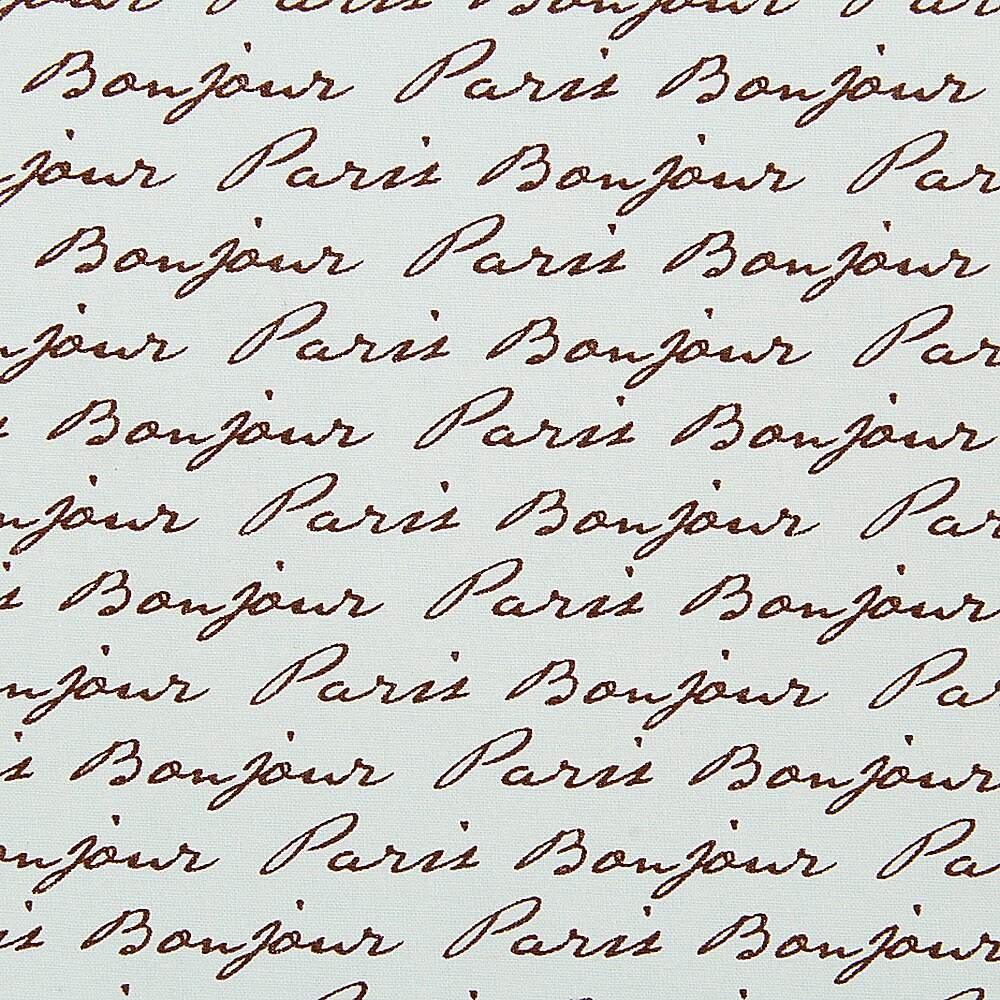 jour Paris Bonjour Par
Bonjour Paris Bonjour
jour Paris Bonjour Par
Bonjour Paris Bonjour
njour Paris Bonjour Par
s Bonjour Paris Bonjour
njour Paris Bonjour Par
is Bonjour Paris Bonjour
njour Paris Bonjour Pa
is Bonjour Paris Bonjour
onjour Paris Bonjour Pa
is Bonjour Paris Bonjour